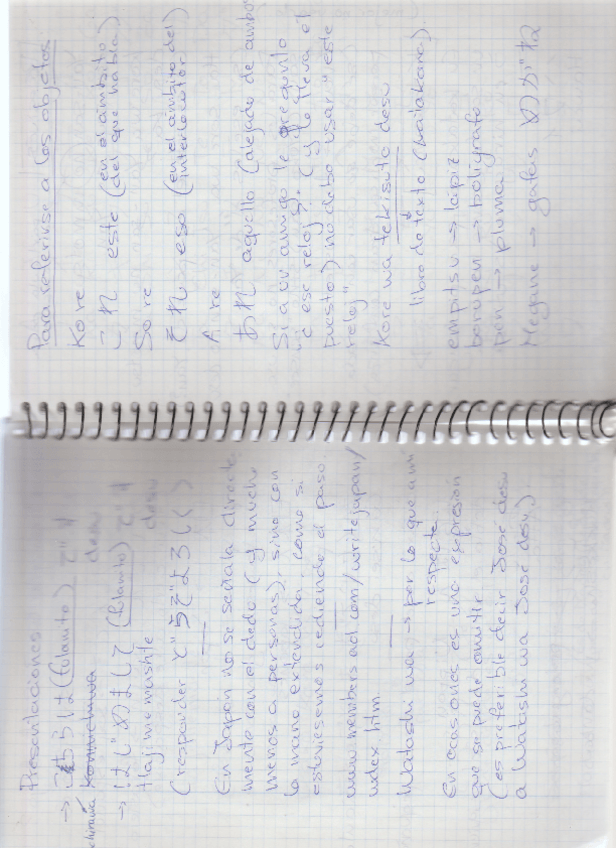 Presentaciones
→ こちらは (fulanito) です
chirawa konnichiwa desu
→ はじめまして (fulanito) です
Hajimemashite desu
(responder どうぞよろしく)
En Japón no se señala directa-
mente con el dedo (y mucho
menos a personas), sino con
la mano extendida, como si
estuviesemos cediendo el paso.
www members ad com/writejapan/
index.htm
Watashi wa → por lo que a mi
respecta.
En ocasiones es una expresión
que se puede omitir
(es preferible decir Jose desu
a Watashi wa Jose desu).
Para referirse a los objetos
Kore
これ este (en el ámbito
del que habla)
Sore
それ eso (en el ámbito del
interlocutor)
Are
あれ aquello (alejado de ambos
Si a un amigo le pregunto
¿ese reloj? (y lo lleva él
puesto) no debo usar "este
reloj"
Kore wa tekisuto desu
libro de texto (katakana).
empitsu → lápiz
borupen → bolígrafo
pen → pluma
Megane → gafas めがね